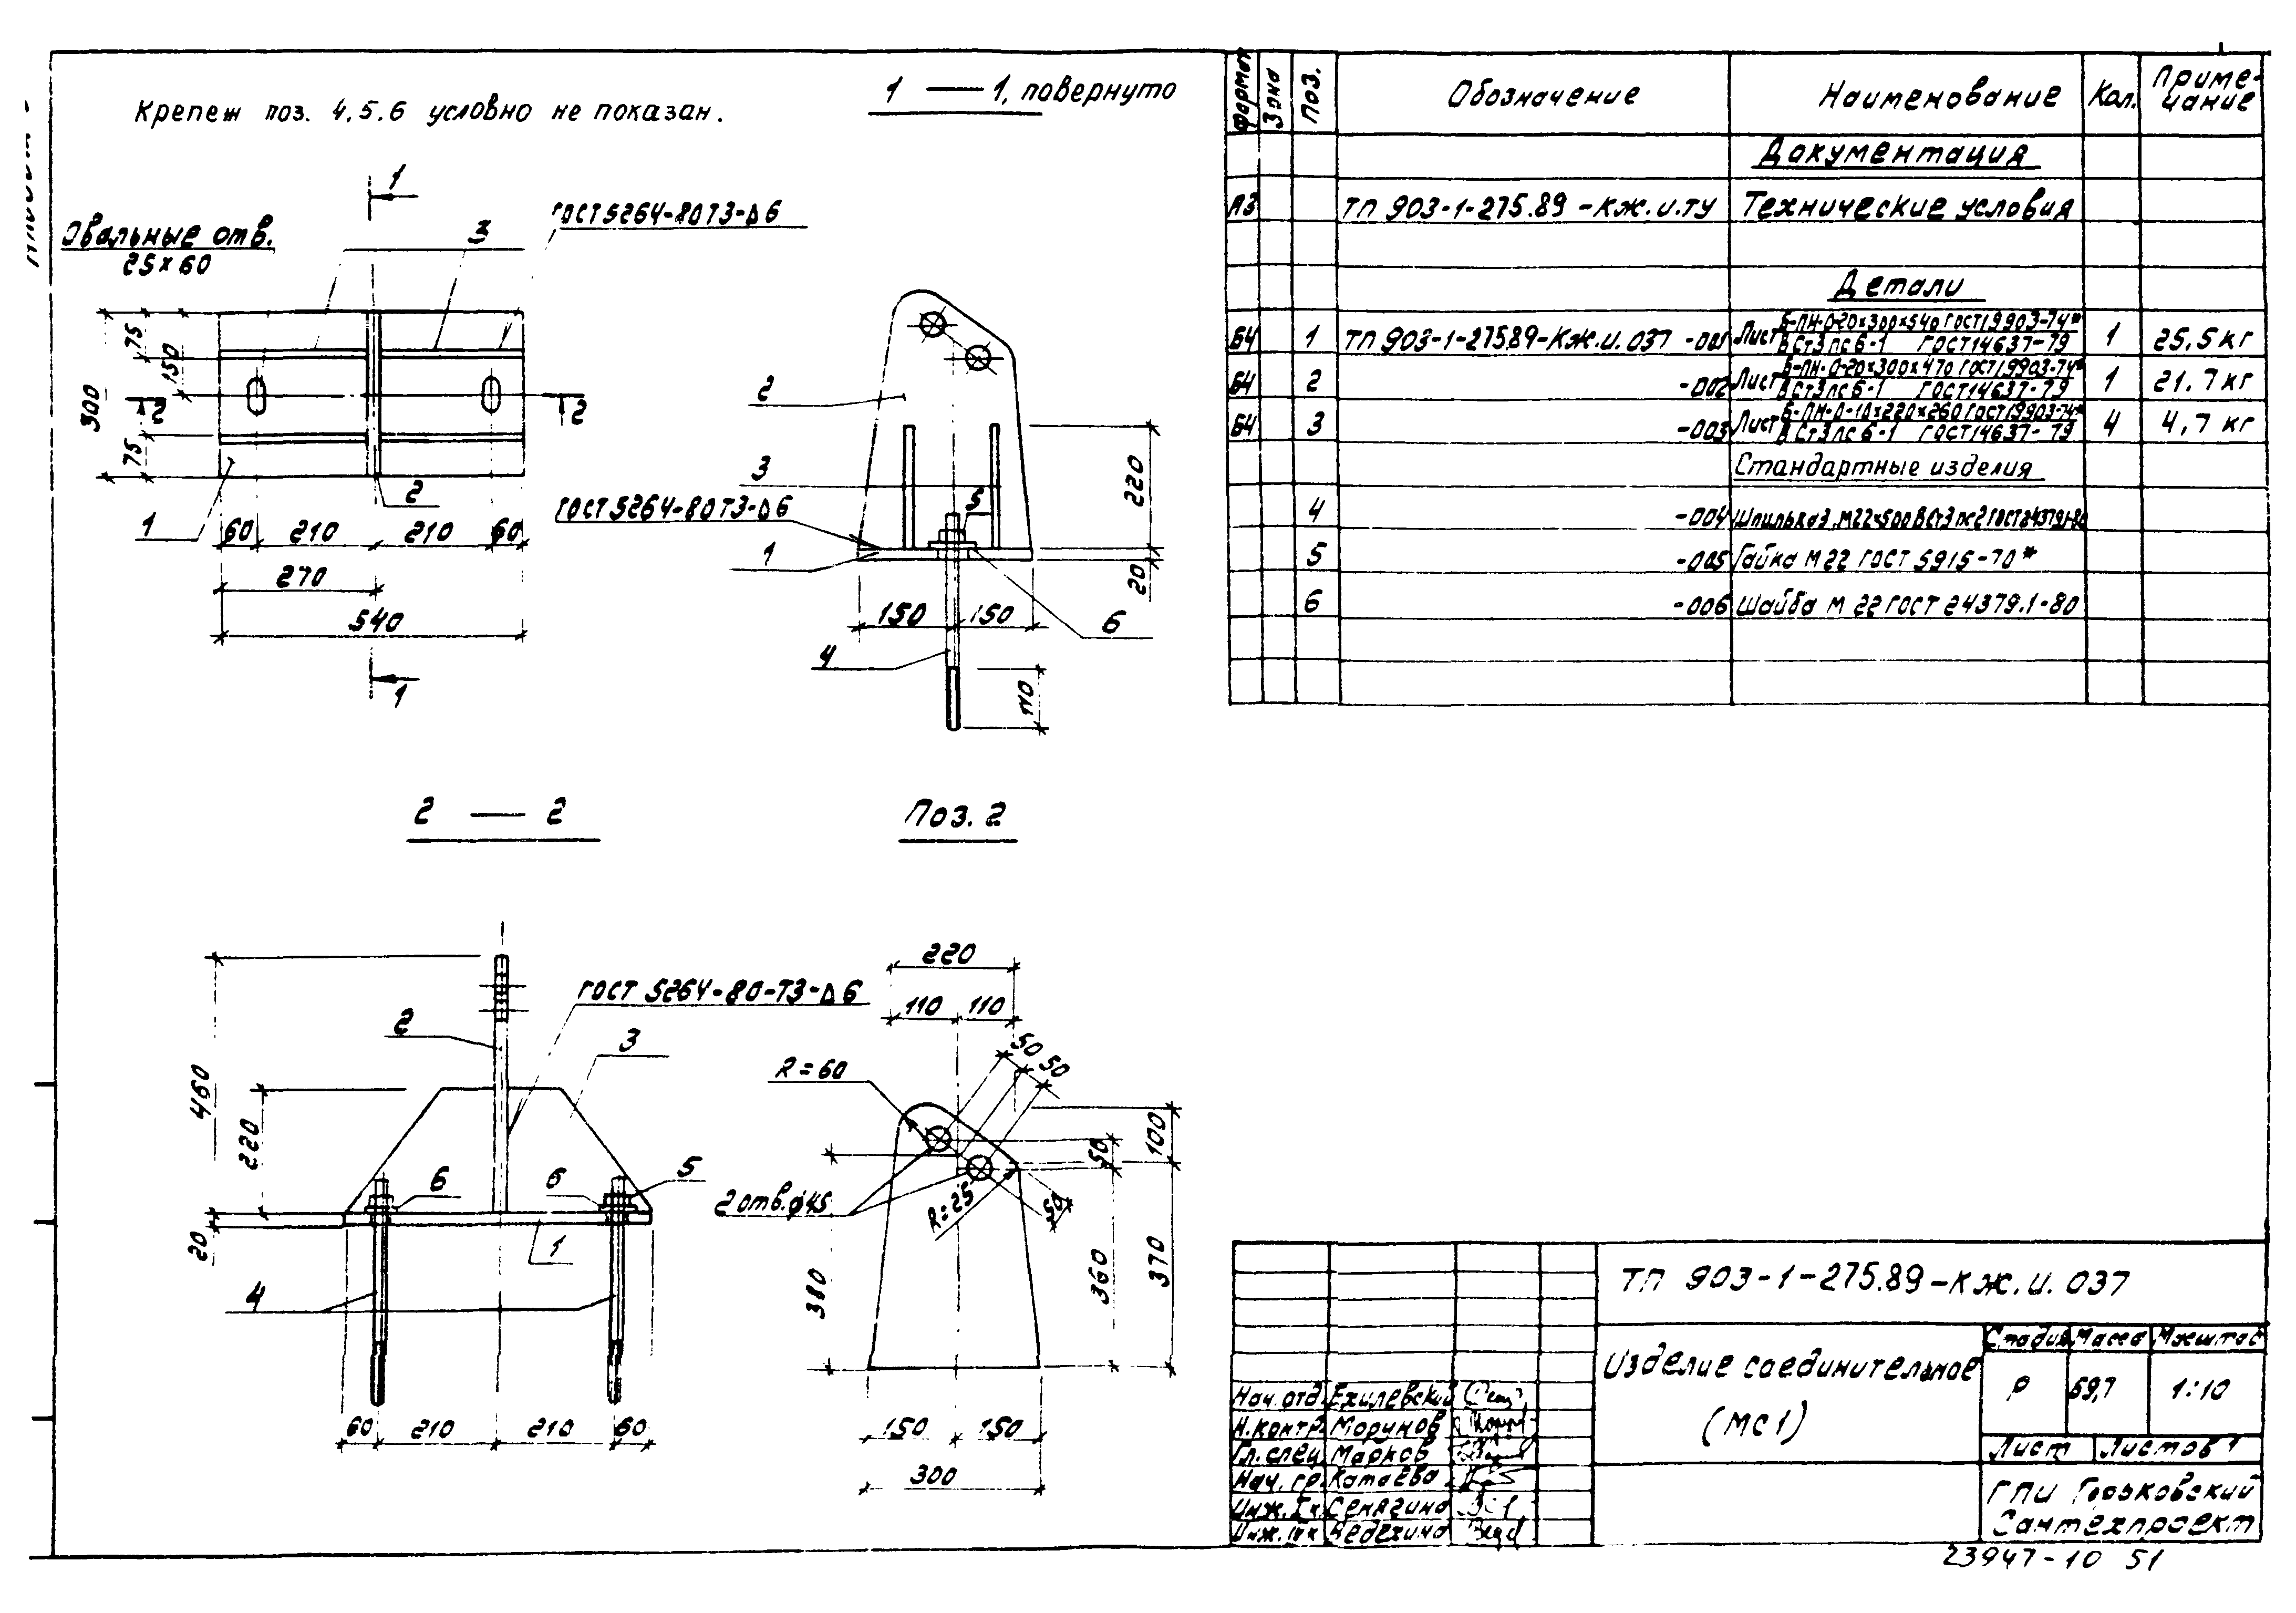 Крепеж поз. 4,5.6 условно не показан.
1 — 1, повернуто
1
Овальные отв.
25×60
3
ГОСТ 5264-80 Т3-Δ6
75
150
300
75
2
2
1
2
60
210
210
60
270
540
1
2
3
ГОСТ 5264-80 Т3-Δ6
1
5
220
20
150
150
6
4
110
2 — 2
Поз. 2
460
220
20
2
ГОСТ 5264-80-Т3-Δ6
3
6
6
5
1
4
60
210
210
60
220
110
110
50
50
R=60
100
50
2 отв. φ45
R=25
50
380
360
370
150
150
300
Формат
Зона
Поз.
Обозначение
Наименование
Кол.
Приме-
чание
Документация
А3
ТП 903-1-275.89-КЖ.И.ТУ
Технические условия
Детали
БЧ 1 ТП 903-1-275.89-КЖ.И.037 -001 Лист Б-ПН-О-20×300×540 ГОСТ 19903-74* 1 25,5 кг
ВСт3пс6-1 ГОСТ 14637-79
БЧ 2 -002 Лист Б-ПН-О-20×300×470 ГОСТ 19903-74* 1 21.7 кг
ВСт3пс6-1 ГОСТ 14637-79
БЧ 3 -003 Лист Б-ПН-О-10×220×260 ГОСТ 19903-74* 4 4,7 кг
ВСт3пс6-1 ГОСТ 14637-79
Стандартные изделия
4 -004 Шпилька 3.М22×500 ВСт3пс2 ГОСТ 24379.1-80
5 -005 Гайка М22 ГОСТ 5915-70*
6 -006 Шайба М 22 ГОСТ 24379.1-80
ТП 903-1-275.89-КЖ.И.037
Изделие соединительное
(МС1)
Стадия Масса Масштаб
Р 69,7 1:10
Лист Листов 1
ГПИ Горьковский
Сантехпроект
Нач. отд. Ехилевский
Н.контр. Моринов
Гл. спец. Марков
Нач. гр. Катаева
Инж. Iк. Сенягина
Инж. Ведехина
23947-10 51